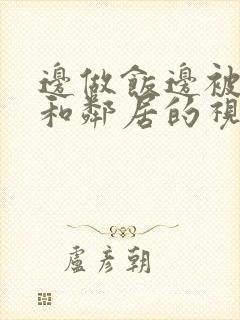 邊做飯邊被
和鄰居的視
盧彥朝